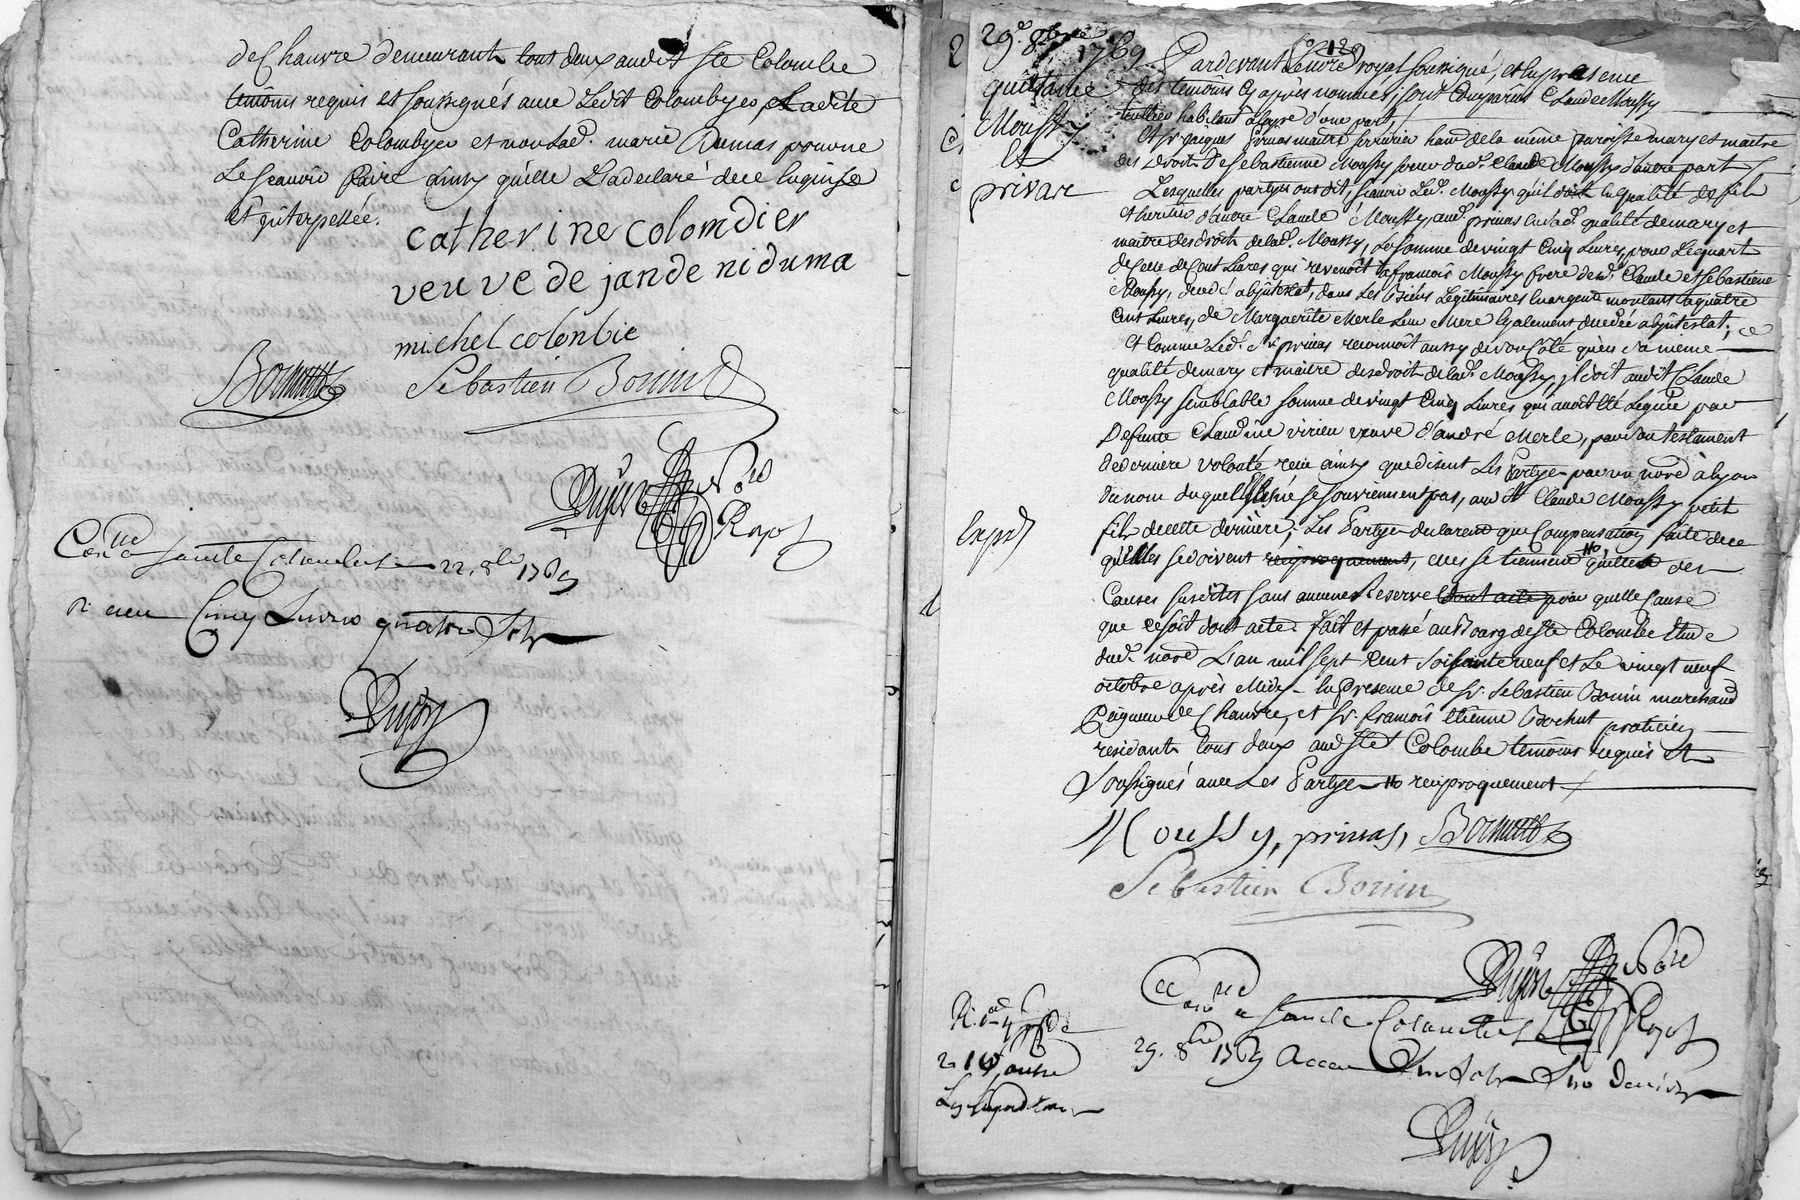 de Chanvre demeurants tous deux audit Ste Colombe
temoins requis et soussignés avec Ledit Colombyer, Ladite
Catherine Colombyer et non Lad. marie Dumas pour ne
Le scavoir faire ainsy qu'elle L'a declaré de ce enquise
et interpellée.
catherine colomdier
veuve de jande niduma
michel colonbie
Sebastien Bonin
Dujast Nore
Royal
Con.lle a Sainte Colombe Le 22. 8bre 1769
R. Cinq Livres quatre Sols
29e 8bre 1769
quittance
Moussy
Et
privat
Pardevant Lenore royal soussigné, et en presence
des temoins cy apres nommés, sont Comparus Claude Moussy
habitant d'une part,
Et Sr. jaques primas maitre serrurier hant de la même paroisse mary et maitre
des droits de Sebastienne Moussy soeur dud. Claude Moussy d'autre part
Lesquelles partyes ont dit, scavoir Led. Moussy qu'il doit en qualité de fils
et heritier d'autre Claude Moussy, aud. primas en lad. qualité de mary et
maitre des droits de lad. Moussy, La somme de vingt Cinq Livres, pour Le quart
de Celle de Cent Livres qui revenoit à francois Moussy frere desd. Claude et Sebastienne
Moussy, decedé abintestat, dans Les Biens Legitimaires en argent montants a quatre
Cent Livres, de Marguerite Merle Leur Mere egalement decedée abintestat; ce
Et Comme Led. Sr. primas reconnoit aussy de son Côté qu'en sa meme
qualité de mary et maitre des droits de lad. Moussy, il doit audit Claude
Moussy semblable somme de vingt Cinq Livres qui avoit été Leguée par
Defunte Claudine virieu veuve d'andré Merle, par son testament
de derniere volonté reçu ainsy que disent Les Partyes par un noré à Lyon
du nom duquel ils ne se souviennent pas, aud. Claude Moussy petit
fils de cette derniere; Les Partyes declarent que Compensation faite de ce
qu'elles se doivent reciproquement, elles se tiennent quittes des
Causes susdites sans aucune Reserve dont acte pour quelle Cause
que ce soit dont acte. fait et passé au Bourg de Ste Colombe Etude
dud. noré L'an mil sept Cent soixante neuf et Le vingt neuf
octobre après Midy en presence de Sr. Sebastien Bonin marchand
Peigneur de Chanvre, et Sr. francois Etienne Bochut praticien
residants tous deux aud. Ste Colombe temoins requis et
soussignés avec Les Partyes reciproquement
Moussy, primas,
Sebastien Bonin
Nore
Royal
Con.lle a Sainte Colombe Le
29. 8bre 1769